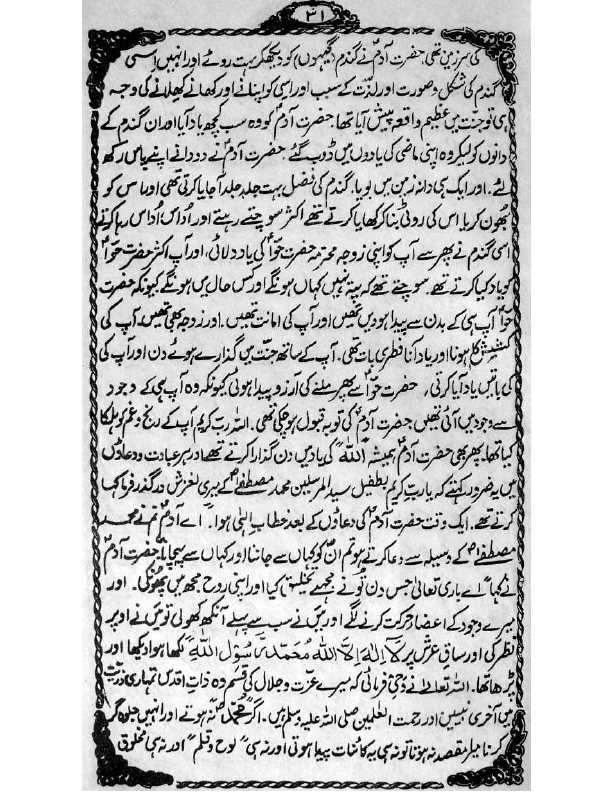 ۳۱
کی سرزمین تھی حضرت آدمؑ نے گندم (گیہوں) کو دیکھکر بہت روئے اور انہیں اسی
گندم کی شکل و صورت اور لذّت کے سبب اور اسی کو اپنانے اور کھانے کھلانے کی وجہ
ہی تو جنت میں عظیم واقعہ پیش آیا تھا۔ حضرت آدمؑ کو وہ سب کچھ یاد آیا اور ان گندم کے
دانوں کو لیکر وہ اپنی ماضی کی یادوں میں ڈوب گئے۔ حضرت آدمؑ نے دو دانے اپنے پاس رکھ
لئے۔ اور ایک ہی دانہ زمین میں بویا۔ گندم کی فصل بہت جلد جلد آجایا کرتی تھی اور اس کو
بھون کر یا اس کی روٹی بنا کر کھایا کرتے تھے اکثر سوچتے رہتے اور اُداس اُداس رہا کرتے
اسی گندم نے پھر سے آپ کو اپنی زوجہ محترمہ حضرت حوّاؑ کی یاد دلائی، اور آپ اکثر حضرت حوّاؑ
کو یاد کیا کرتے تھے سوچتے تھے کہ پتہ نہیں کہاں ہونگے اور کس حال میں ہونگے کیونکہ حضرت
حوّاؑ آپ ہی کے بدن سے پیدا ہوئیں تھیں اور آپ کی امانت تھیں۔ اور زوجہ بھی تھیں۔ آپ کی
کشیش کا ہونا اور یاد آنا فطری بات تھی۔ آپ کے ساتھ جنت میں گذارے ہوئے دن اور آپ کی
کی باتیں یاد آیا کرتی، حضرت حوّاؑ سے پھر ملنے کی آرزو پیدا ہوئی کیونکہ وہ آپ ہی کے وجود
سے وجود میں آئی تھیں حضرت آدمؑ کی توبہ قبول ہو چکی تھی۔ اللہ رب کریم آپ کے رنج و غم کو ہلکا
کیا تھا۔ پھر بھی حضرت آدمؑ ہمیشہ "اللہ" کی یاد میں دن گذارا کرتے تھے اور ہر عبادت و دعاؤں
میں یہ ضرور کہتے کہ یا رب کریم بطفیل سید المرسلین محمد مصطفےٰؐ کے میری لغزش درگذر فرما کہا
کرتے تھے۔ ایک وقت حضرت آدمؑ کی دعاؤں کے بعد خطاب الٰہی ہوا۔ "اے آدمؑ تم نے محمد
مصطفےٰؐ کے وسیلہ سے دعا کرتے ہو تم انؐ کو کہاں سے جانا اور کہاں سے پہچانا" حضرت آدمؑ
نے کہا "اے باری تعالیٰ جس دن تُو نے مجھے تخلیق کیا اور اپنی روح مجھ میں پھونکی۔ اور
میرے وجود کے اعضاء حرکت کرنے لگے اور میں نے سب سے پہلے آنکھ کھولی تو میں نے اوپر
نظر کی اور ساق عرش پر لَا اِلٰهَ اِلَّا اللّٰهُ مُحَمَّدٌ رَّسُوْلُ اللّٰهِ لکھا ہوا دیکھا اور
پڑھا تھا۔ اللہ تعالےٰ نے وحی فرمائی کہ میرے عزّت و جلال کی قسم وہ ذات اقدس تمہاری ذرّیت
میں آخری نبیین اور رحمت العلمین صلی اللہ علیہ وسلم ہیں۔ اگر "محمدؐ" نہ ہوتے اور انہیں جلوہ گر
کرنا میرا مقصد نہ ہوتا تو نہ ہی یہ کائنات پیدا ہوتی اور نہ ہی "لوح و قلم" اور نہ ہی مخلوق